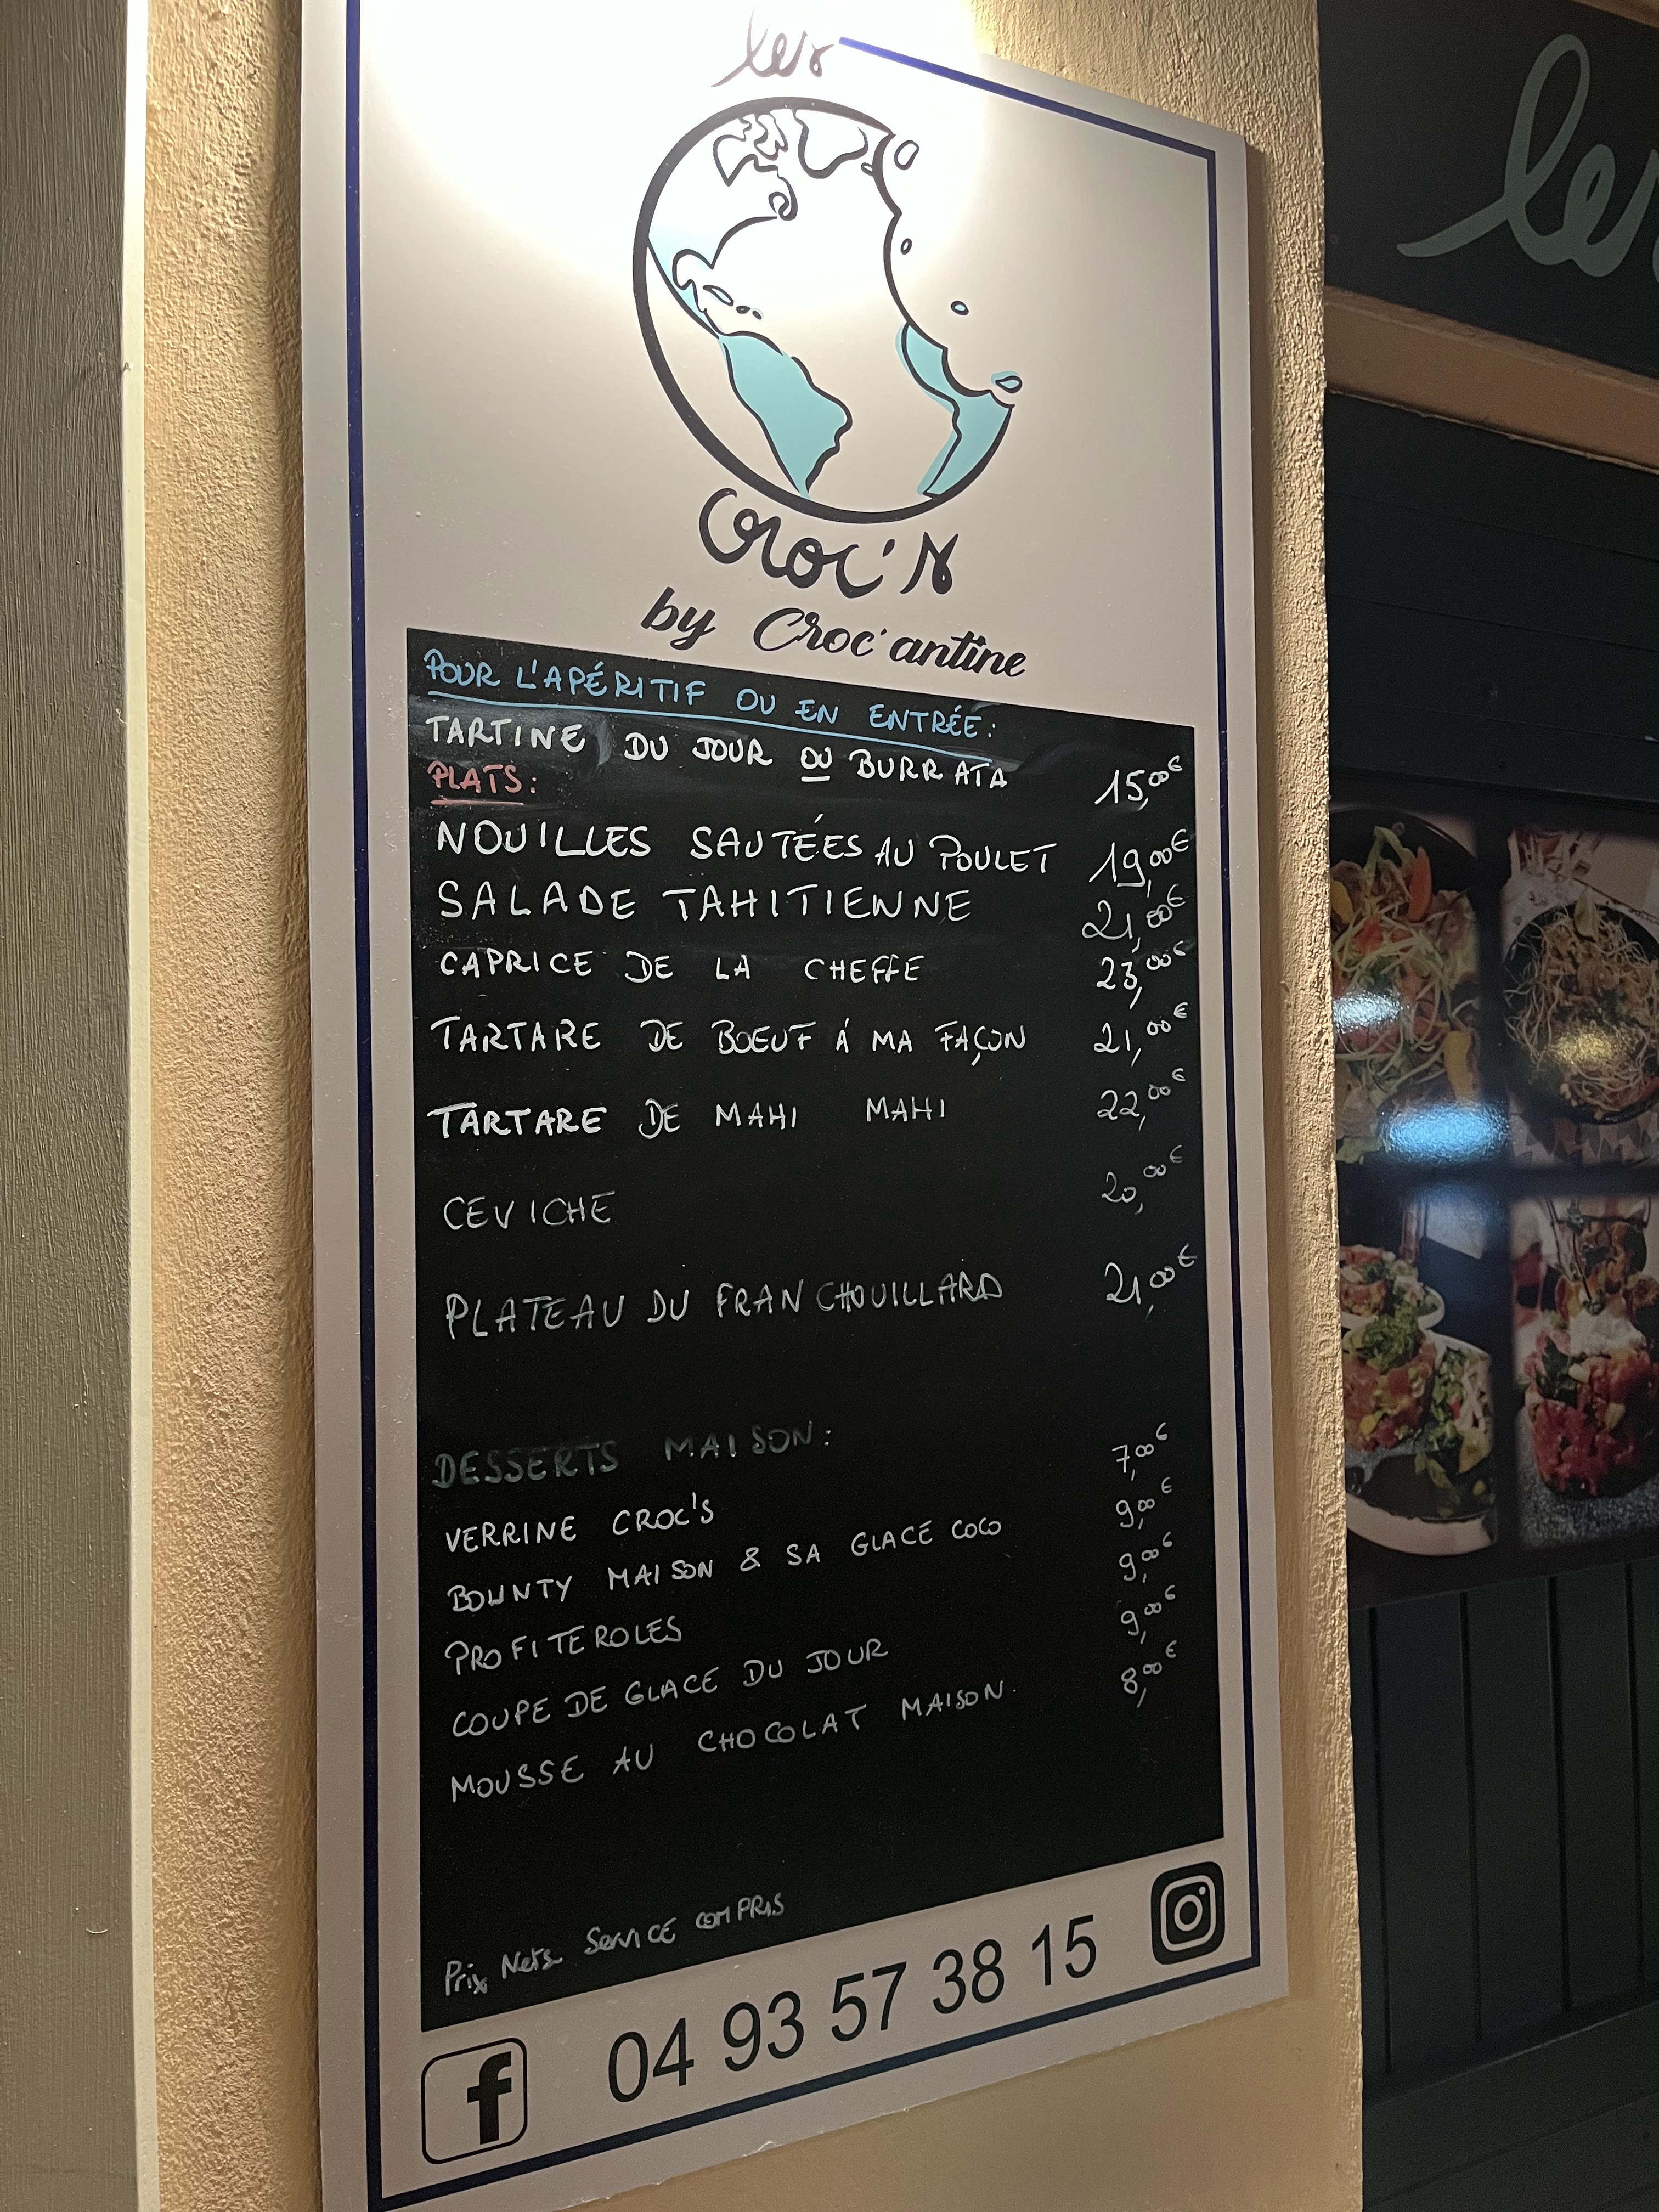 les
Croc's
by Croc'antine
POUR L'APÉRITIF OU EN ENTRÉE:
TARTINE DU JOUR OU BURRATA 15,00€
PLATS:
NOUILLES SAUTÉES AU POULET 19,00€
SALADE TAHITIENNE 21,00€
CAPRICE DE LA CHEFFE 23,00€
TARTARE DE BOEUF Á MA FAÇON 21,00€
TARTARE DE MAHI MAHI 22,00€
CEVICHE 20,00€
PLATEAU DU FRANCHOUILLARD 21,00€
DESSERTS MAISON:
VERRINE CROC'S 7,00€
BOUNTY MAISON & SA GLACE COCO 9,00€
PROFITEROLES 9,00€
COUPE DE GLACE DU JOUR 9,00€
MOUSSE AU CHOCOLAT MAISON. 8,00€
Prix Nets Service COMPRIS
04 93 57 38 15
les